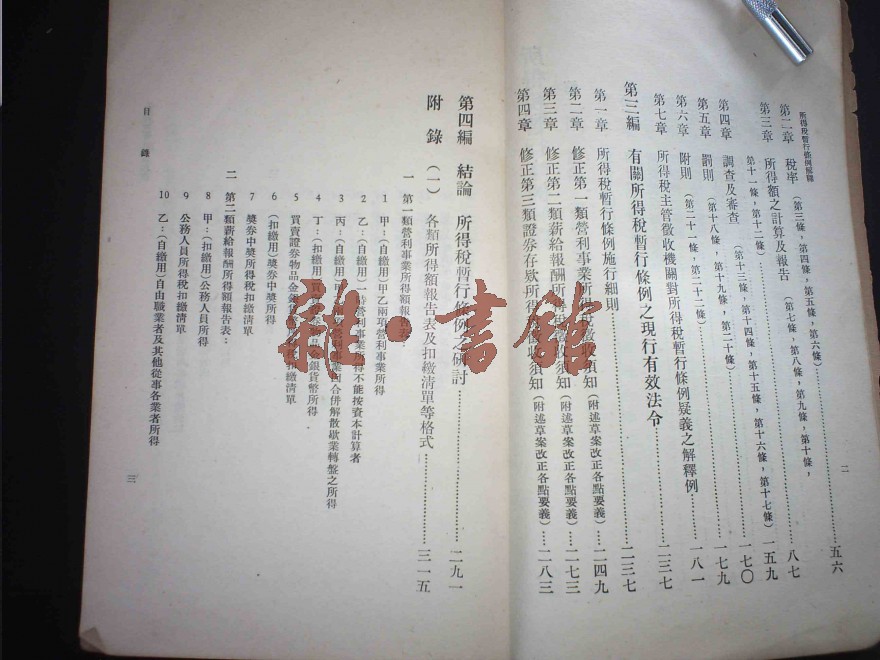 所得稅暫行條例解釋
第二章 稅率（第三條，第四條，第五條，第六條）……五六
第三章 所得額之計算及報告（第七條，第八條，第九條，第十條，
第十一條，第十二條）……八七
第四章 調查及審查（第十三條，第十四條，第十五條，第十六條，第十七條）……一五九
第五章 罰則（第十八條，第十九條，第二十條）……一七〇
第六章 附則（第二十一條，第二十二條）……一七九
第七章 所得稅主管徵收機關對所得稅暫行條例疑義之解釋例……一八一
第三編 有關所得稅暫行條例之現行有效法令……二三七
第一章 所得稅暫行條例施行細則……二三七
第二章 修正第一類營利事業所得稅徵收須知（附述草案改正各點要義）……二四九
第三章 修正第二類薪給報酬所得稅徵收須知（附述草案改正各點要義）……二七三
第四章 修正第三類證券存款所得稅徵收須知（附述草案改正各點要義）……二八三
二
第四編 結論 所得稅暫行條例之研討……二九一
附錄（一） 各類所得額報告表及扣繳清單等格式……三一五
一 第一類營利事業所得額報告表：
1 甲：（自繳用）甲乙兩項營利事業所得
2 乙：（自繳用）一時營利事業所得不能按資本計算者
3 丙：（自繳用）營利事業因合併解散歇業轉盤之所得
4 丁：（扣繳用）買賣證券物品金銀貨幣所得
5 買賣證券物品金銀貨幣所得稅扣繳清單
6 （扣繳用）獎券中獎所得
7 獎券中獎所得稅扣繳清單
二 第二類薪給報酬所得額報告表：
8 甲：（扣繳用）公務人員所得
9 公務人員所得稅扣繳清單
10 乙：（自繳用）自由職業者及其他從事各業者所得
目錄
三
龍·書館